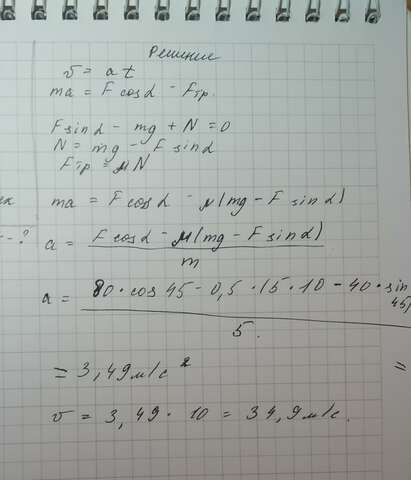 Решение
v = at
ma = F cosα - Fтр.
F sinα - mg + N = 0
N = mg - F sinα
Fтр = μN
ma = F cosα - μ(mg - F sinα)
--? a = F cosα - μ(mg - F sinα)
m
a = 80·cos 45 - 0,5·15·10 - 40·sin 45
5.
= 3,49 м/с² =
v = 3,49·10 = 34,9 м/с.